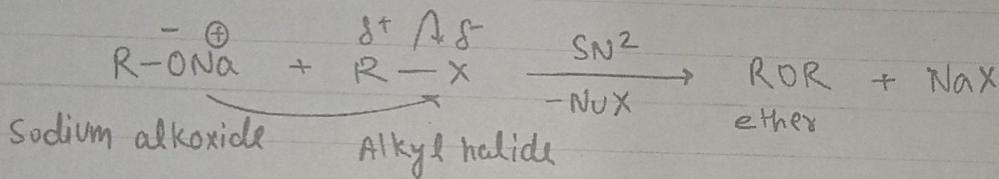 R-O⁻Na⊕ + R^δ+ — X^δ- SN² → -NUX ROR + NaX
Sodium alkoxide Alkyl halide ether